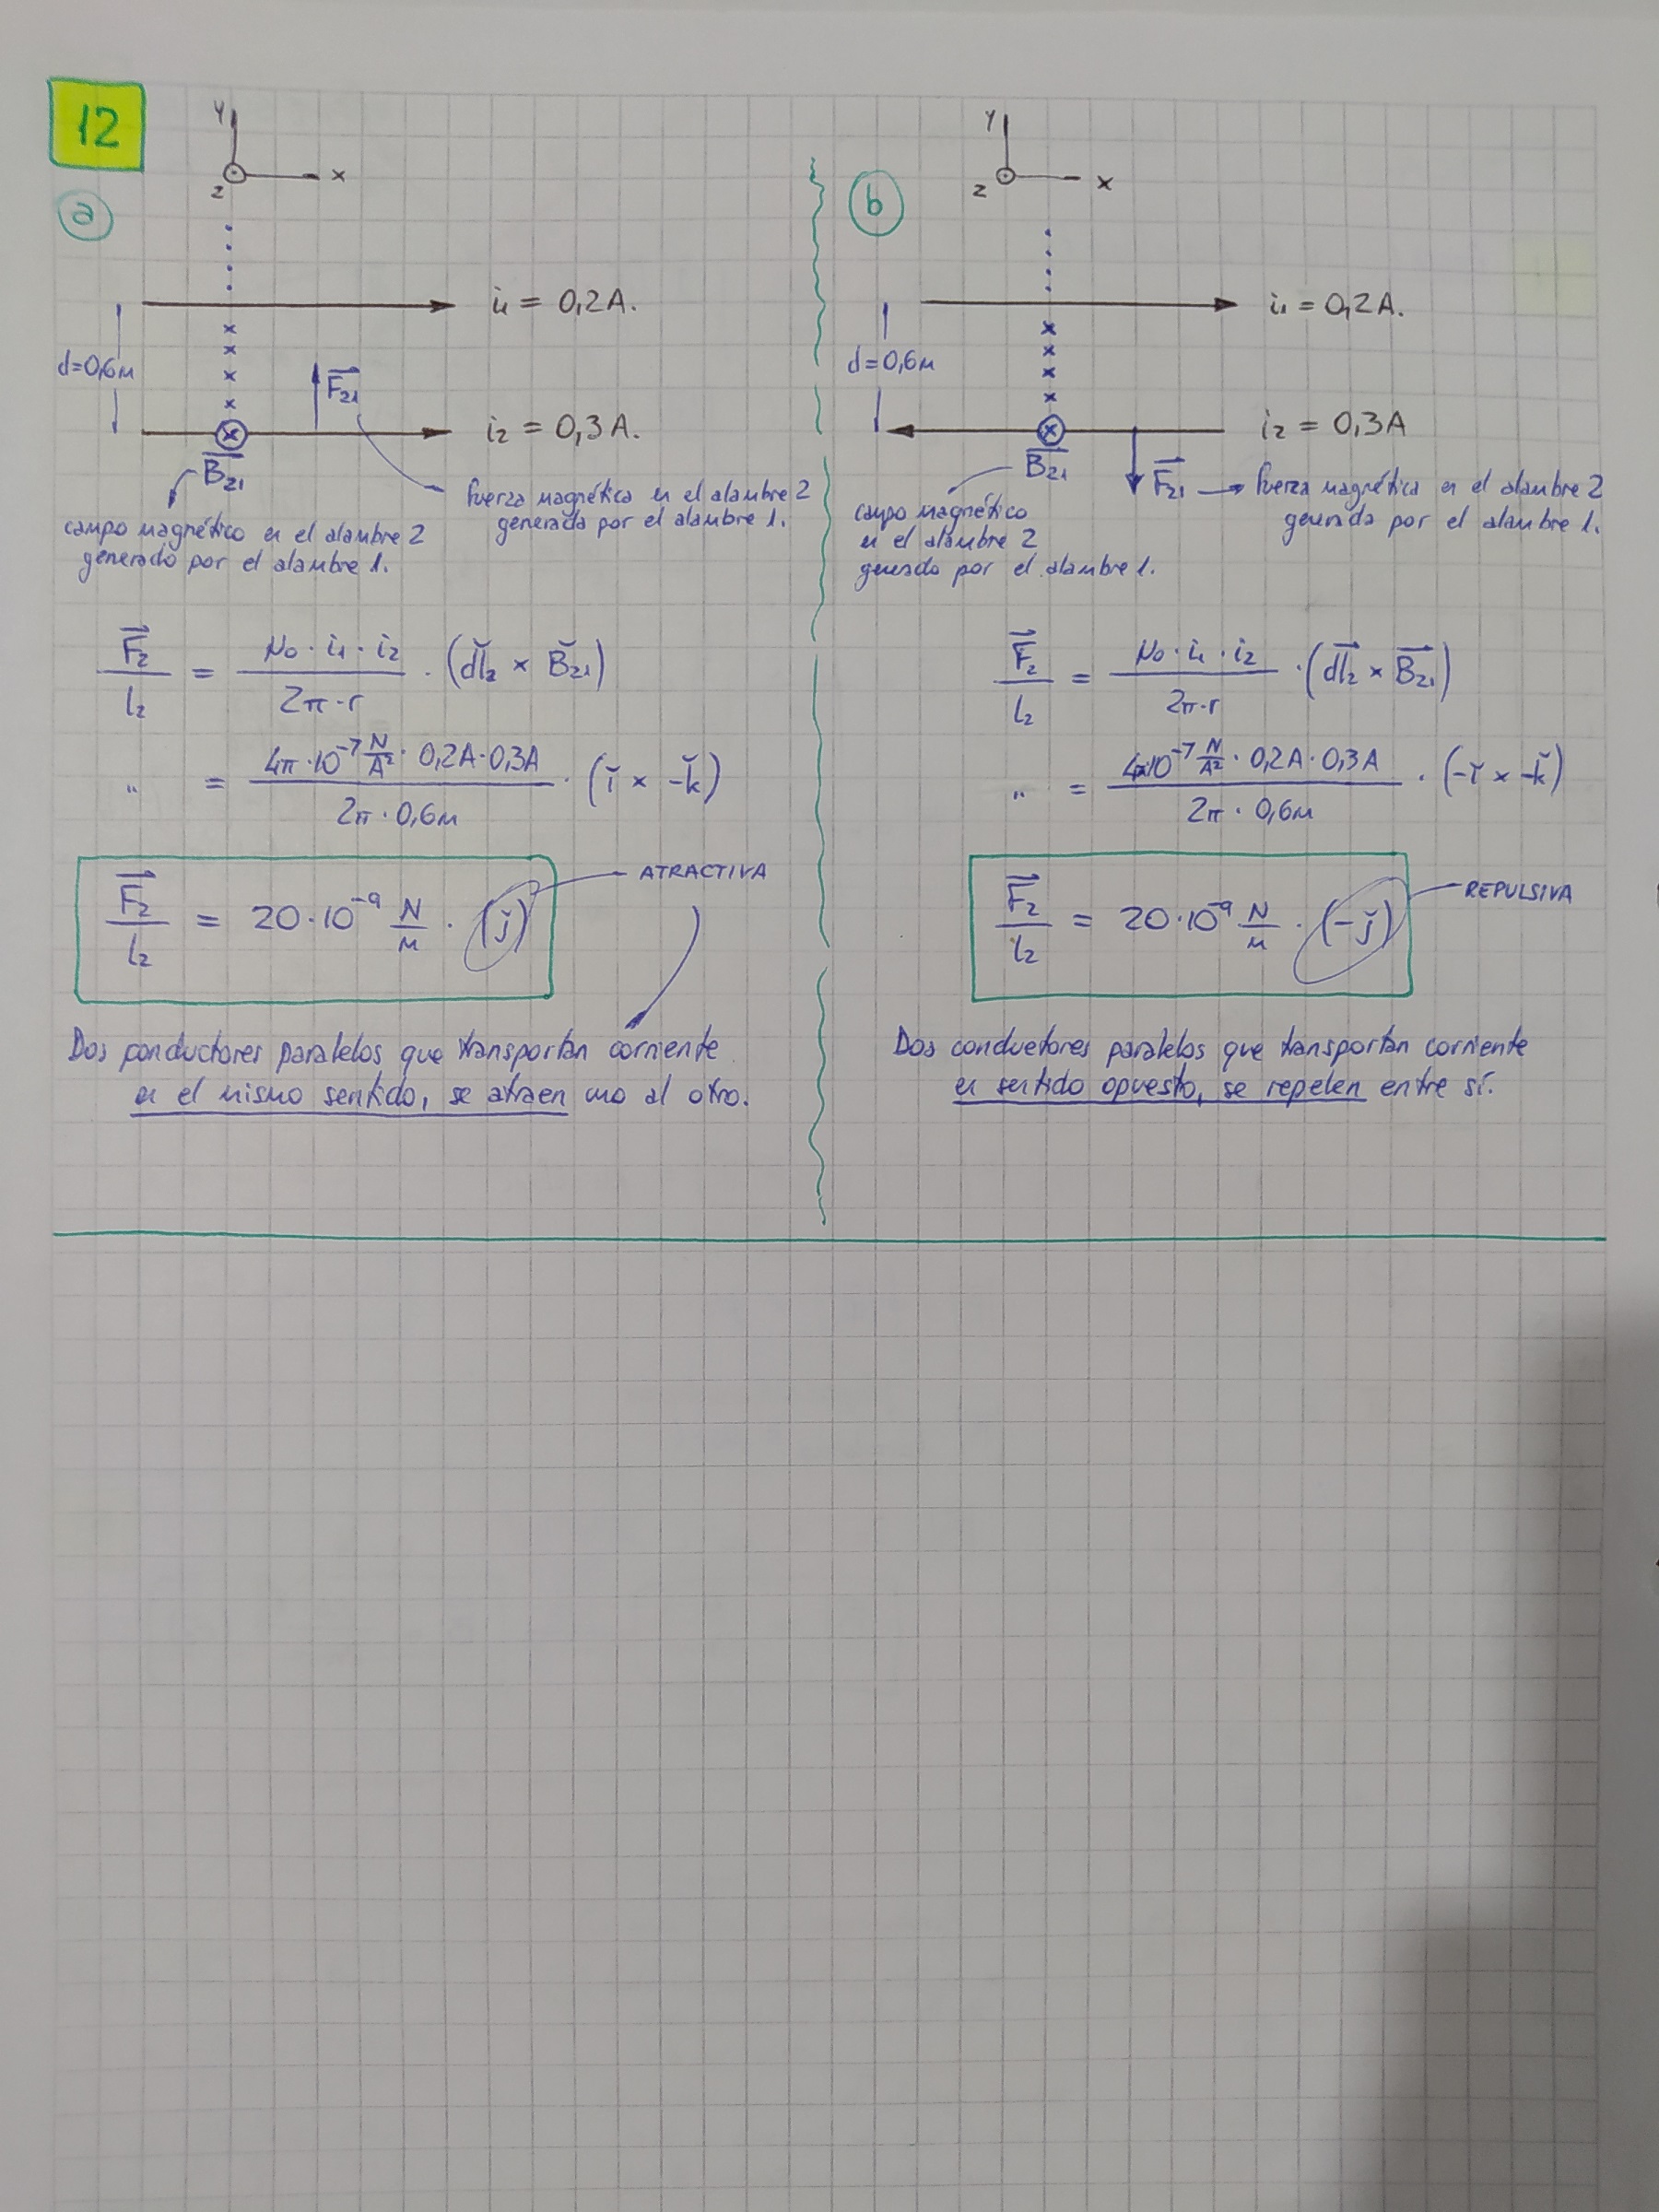 12
y
x
z
a
i₁ = 0,2A.
d=0,6m
F₂₁
i₂ = 0,3A.
B₂₁
fuerza magnética en el alambre 2
generada por el alambre 1.
campo magnético en el alambre 2
generado por el alambre 1.
F₂/l₂ = μ₀ · i₁ · i₂ / 2π · r · (dl₂ × B₂₁)
" = 4π · 10⁻⁷ N/A² · 0,2A · 0,3A / 2π · 0,6m · (ǐ × -ǩ)
F₂/l₂ = 20 · 10⁻⁹ N/m · (ǰ)
ATRACTIVA
Dos conductores paralelos que transportan corriente
en el mismo sentido, se atraen uno al otro.
y
x
z
b
i₁ = 0,2A.
d=0,6m
i₂ = 0,3A
B₂₁
F₂₁ → fuerza magnética en el alambre 2
generada por el alambre 1.
campo magnético
en el alambre 2
generado por el alambre 1.
F₂/l₂ = μ₀ · i₁ · i₂ / 2π · r · (dl₂ × B₂₁)
" = 4π·10⁻⁷ N/A² · 0,2A · 0,3A / 2π · 0,6m · (-ǐ × -ǩ)
F₂/l₂ = 20 · 10⁻⁹ N/m · (-ǰ)
REPULSIVA
Dos conductores paralelos que transportan corriente
en sentido opuesto, se repelen entre sí.